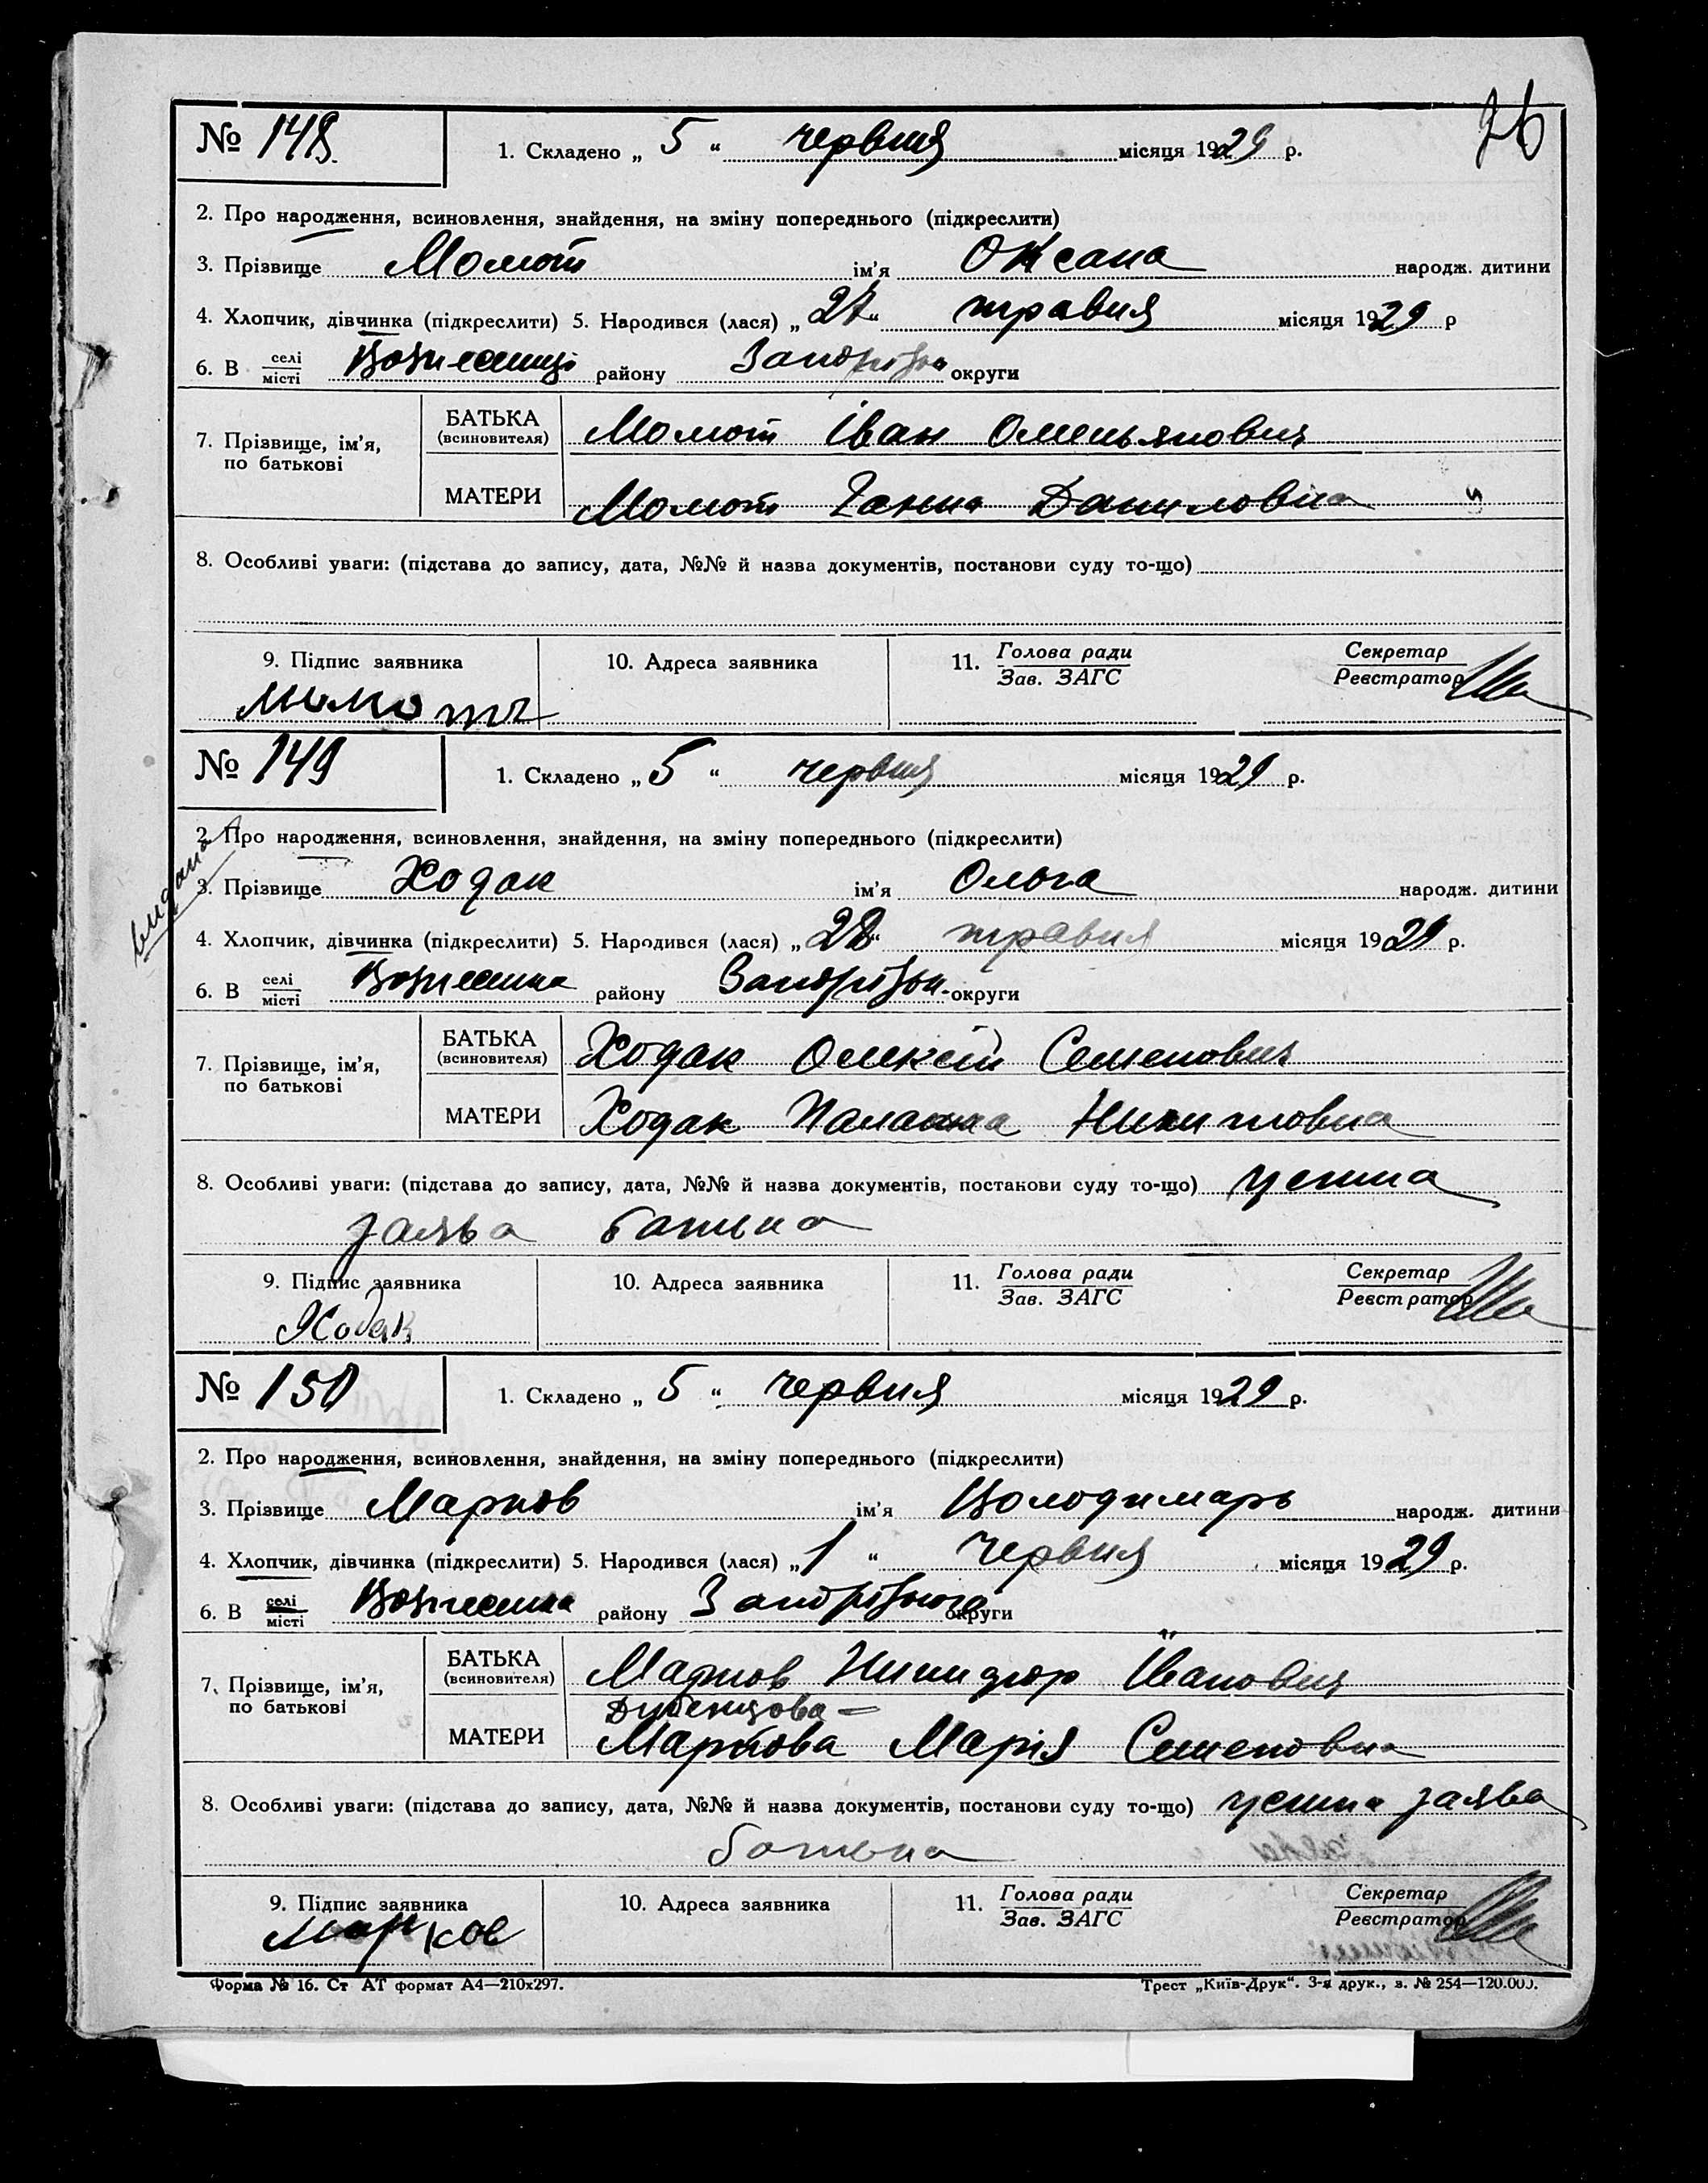 76
№ 148. 1. Складено „ 5 “ червня місяця 1929 р.
2. Про народження, всиновлення, знайдення, на зміну попереднього (підкреслити)
3. Прізвище Момот ім'я Оксана народж. дитини
4. Хлопчик, дівчинка (підкреслити) 5. Народився (лася) „ 27 “ травня місяця 1929 р
6. В селі/місті Вознесенці району Запорізьк округи
7. Прізвище, ім'я, по батькові
БАТЬКА (всиновителя) Момот Іван Омельянович
МАТЕРИ Момот Ганна Даниловна
8. Особливі уваги: (підстава до запису, дата, №№ й назва документів, постанови суду то-що)
9. Підпис заявника 10. Адреса заявника 11. Голова ради/Зав. ЗАГС Секретар/Реєстратор
Момотъ
№ 149 1. Складено „ 5 “ червня місяця 1929 р.
видана
2. Про народження, всиновлення, знайдення, на зміну попереднього (підкреслити)
3. Прізвище Ходак ім'я Ольга народж. дитини
4. Хлопчик, дівчинка (підкреслити) 5. Народився (лася) „ 28 “ травня місяця 1929 р.
6. В селі/місті Вознесенка району Запорізьк. округи
7. Прізвище, ім'я, по батькові
БАТЬКА (всиновителя) Ходак Олексій Семенович
МАТЕРИ Ходак Палажка Никитовна
8. Особливі уваги: (підстава до запису, дата, №№ й назва документів, постанови суду то-що) устна
заява батька
9. Підпис заявника 10. Адреса заявника 11. Голова ради/Зав. ЗАГС Секретар/Реєстратор
Ходак
№ 150 1. Складено „ 5 “ червня місяця 1929 р.
2. Про народження, всиновлення, знайдення, на зміну попереднього (підкреслити)
3. Прізвище Марков ім'я Володимарь народж. дитини
4. Хлопчик, дівчинка (підкреслити) 5. Народився (лася) „ 1 “ червня місяця 1929 р.
6. В селі/місті Вознесенка району Запорізького округи
7. Прізвище, ім'я, по батькові
БАТЬКА (всиновителя) Марков Іванович
Дубенцова =
МАТЕРИ Маркова Марія Семеновна
8. Особливі уваги: (підстава до запису, дата, №№ й назва документів, постанови суду то-що) устна заява
батька
9. Підпис заявника 10. Адреса заявника 11. Голова ради/Зав. ЗАГС Секретар/Реєстратор
Марков
Форма № 16. Ст АТ формат А4—210x297. Трест „Київ-Друк“. 3-я друк., з. № 254—120.000.